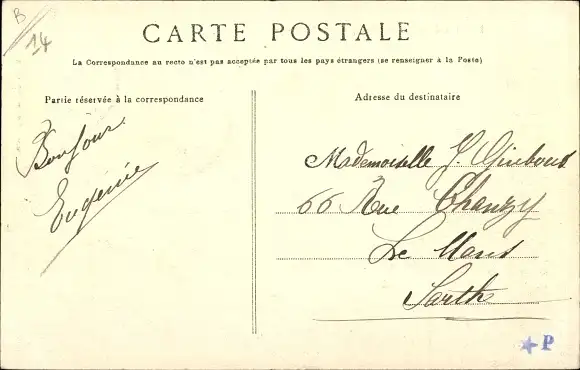 B
14
CARTE POSTALE
La Correspondance au recto n'est pas acceptée par tous les pays étrangers (se renseigner à la Poste)
Partie réservée à la correspondance
Adresse du destinataire
Bonjour
Eugénie
Mademoiselle G.
66 Rue Chanzy
Le Mans
Sarthe
P